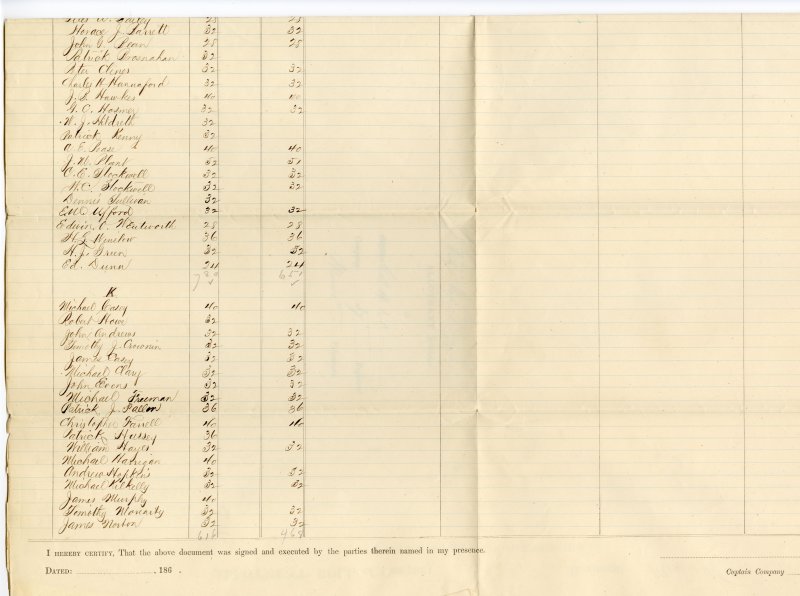 Horace J. Barrett 32 32
John G. Bean 28 28
Patrick Brosnahan 32
Peter Clenes 32 32
Charles H. Hannaford 32 32
J. S. Hawkes 40 40
G. C. Hosmer 32 32
W. J. Hildreth 32
Patrick Kenny 32
A. E. Pease 40 40
J. W. Plant 52 51
C. E. Stockwell 32 32
W. C. Stockwell 32 32
Dennis Sullivan 32
E. W. Ufford 32 32
Edwin C. Wentworth 28 28
H. L. Winslow 36 36
H. J. Green 32 32
Ed. Dunn 24 24
651
K
Michael Casey 40 40
Robert Howe 32
John Andrews 32 32
Timothy J. Crownin 32 32
James Casey 32 32
Michael Clary 32 32
John Coons 32 32
Michael Freeman 32 32
Patrick J. Fallon 36 36
Christopher Farrell 40 40
Patrick Hussey 36
William Hayes 32 32
Michael Harrigan 40
Andrew Hopkins 32 32
Michael Kilkelly 32 32
James Murphy 40
Timothy Moriarty 32 32
James Norton 32 32
616 468
I HEREBY CERTIFY, That the above document was signed and executed by the parties therein named in my presence.
DATED: , 186 .
Captain Company